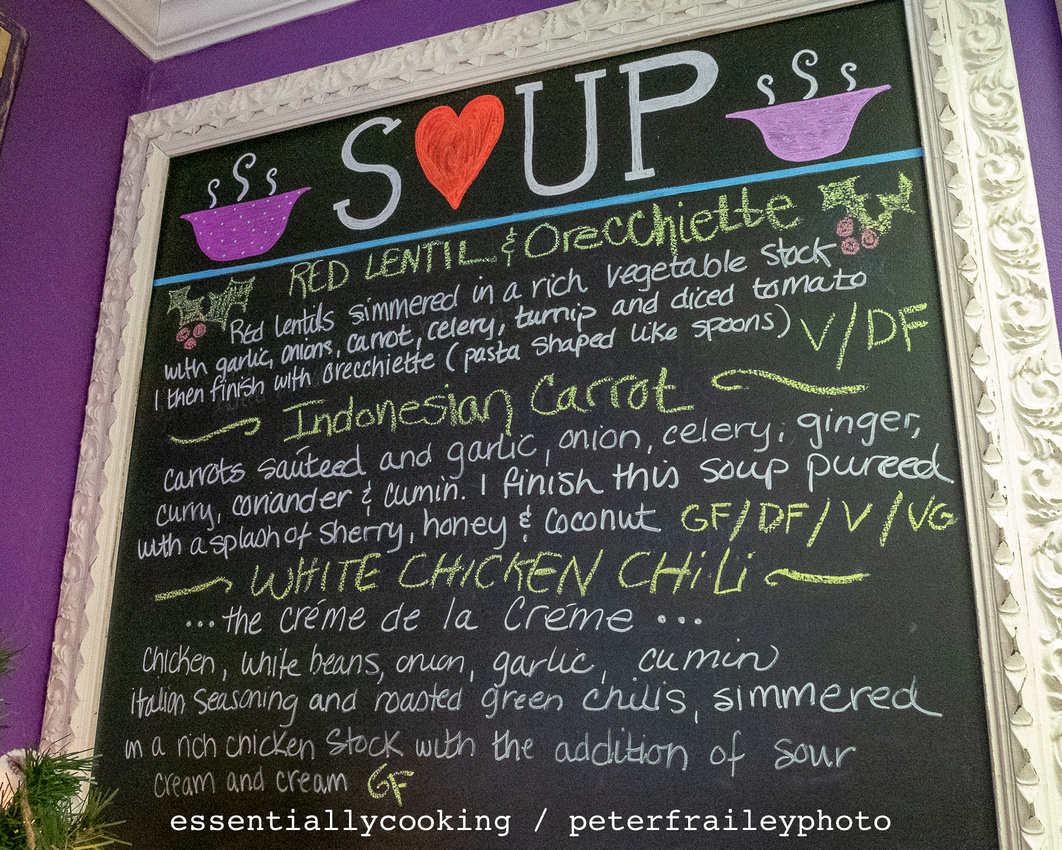 S❤UP
RED LENTIL & Orecchiette
Red lentils simmered in a rich vegetable stock
with garlic, onions, carrot, celery, turnip and diced tomato
I then finish with orecchiette (pasta shaped like spoons) V/DF
Indonesian Carrot
carrots sautéed and garlic, onion, celery, ginger,
curry, coriander & cumin. I finish this soup pureed
with a splash of sherry, honey & coconut GF/DF/V/VG
WHITE CHICKEN CHiLi
...the créme de la Créme...
chicken, white beans, onion, garlic, cumin
italian seasoning and roasted green chilis, simmered
in a rich chicken stock with the addition of sour
cream and cream GF
essentiallycooking / peterfraileyphoto